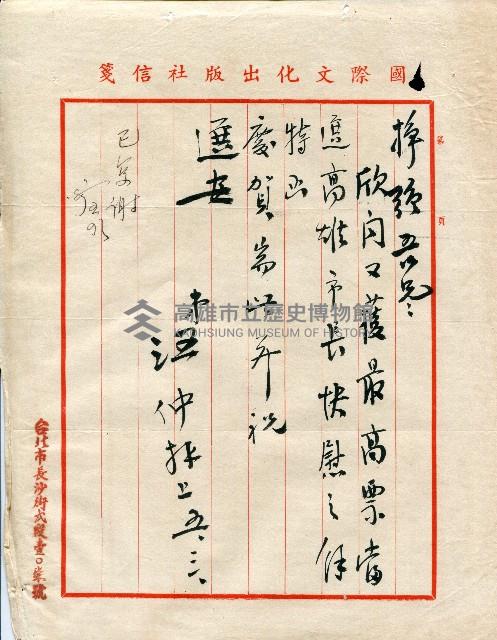 國際文化出版社信箋
第 頁
掙強吾兄：
欣閱又獲最高票當
選高雄市長快慰之餘
特函
慶賀耑此并祝
選安
弟 汪仲 拜上 五.三.
已家謝
台北市長沙街弍段壹〇柒號
高雄市立歷史博物館
KAOHSIUNG MUSEUM OF HISTORY